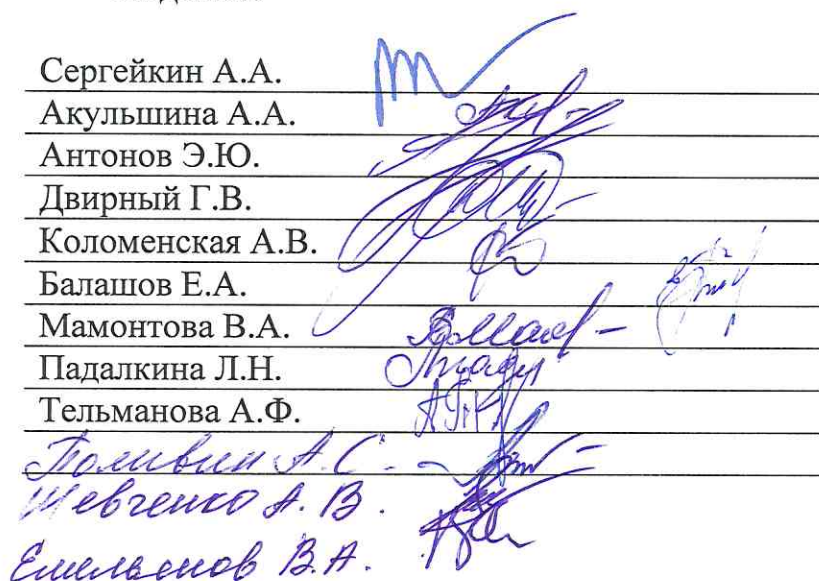 Сергейкин А.А.
Акульшина А.А.
Антонов Э.Ю.
Двирный Г.В.
Коломенская А.В.
Балашов Е.А.
Мамонтова В.А.
Падалкина Л.Н.
Тельманова А.Ф.
Поливин А.С.
Шевченко А.В.
Емельянов В.А.